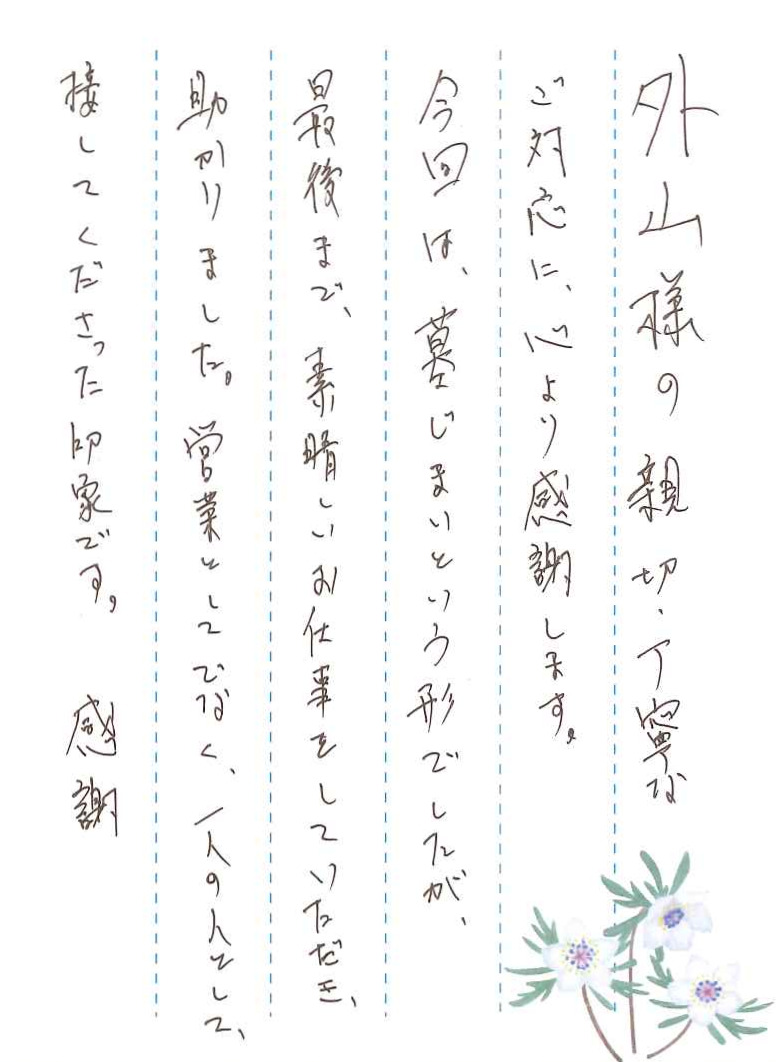 外山様の親切・丁寧な
ご対応に、心より感謝します。
今回は、墓じまいという形でしたが、
最後まで、素晴しいお仕事をしていただき、
助かりました。営業としてでなく、一人の人として、
接してくださった印象です。 感謝